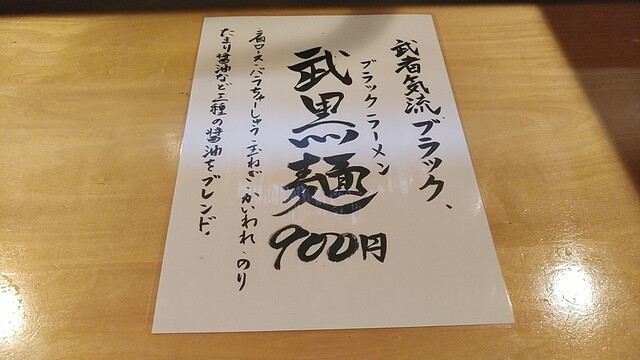 武者気流ブラック、
ブラックラーメン
武黒麺
900円
・肩ロース・バラちゃーしゅう・玉ねぎ・かいわれ・のり
たまり醤油など三種の醤油をブレンド。